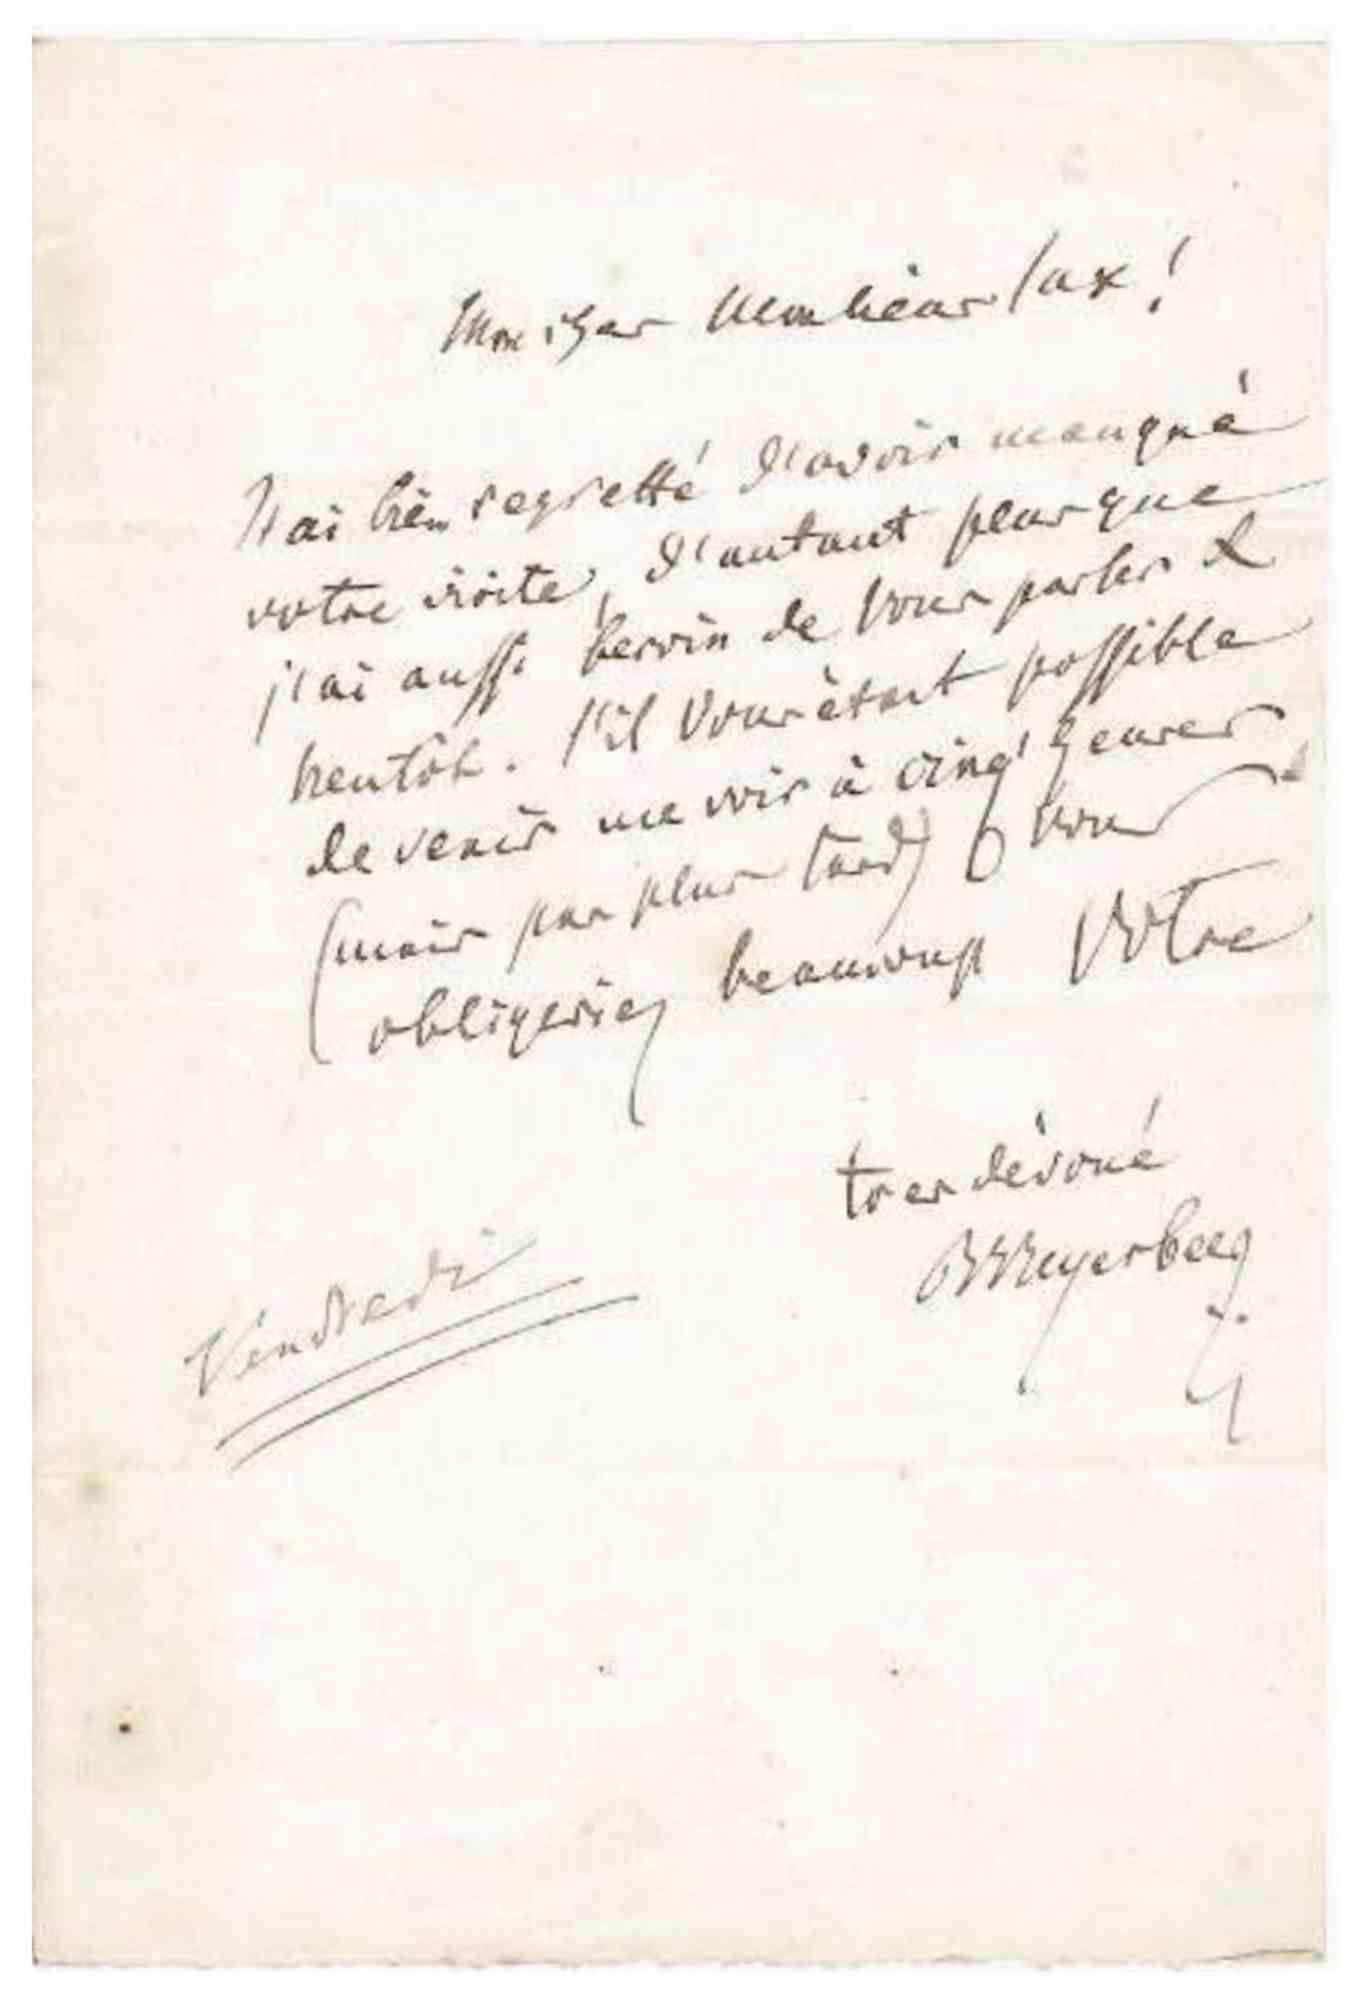 Mon cher Monsieur Sax!
J'ai bien regretté d'avoir manqué
votre visite, d'autant plus que
j'ai aussi besoin de vous parler de
bientôt. S'il vous était possible
de venir me voir à cinq heures
(mais pas plus tard) vous
obligeriez beaucoup Votre
tres dévoué
Meyerbeer
Vendredi